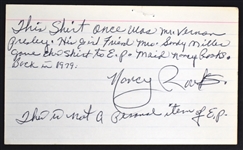 This Shirt once was Mr. Vernon
Presley. His Girl Friend Mrs. Sandy Miller
Gave the Shirt to E.P. Maid Nancy Rooks.
Back in 1979.
Nancy Rooks
This is not a Personal item of E.P.